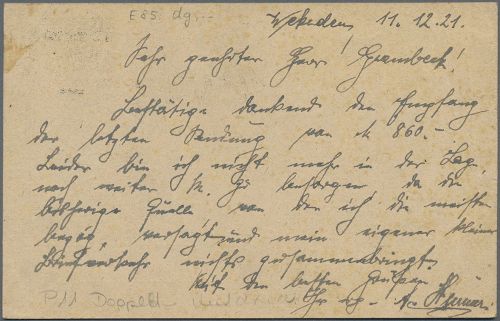 E55. dg.-
11.12.21.
Sehr geehrter Herr Grambeck!
Bestätige dankend den Empfang
der letzten Sendung von M 860.-
Leider bin ich nicht mehr in der Lage,
noch weiter M. Gs besorgen, da die
bisherige Quelle von der ich die meisten
bezog, versagt und mein eigener kleiner
Briefverkehr nichts zusammenbringt.
Mit den besten Grüßen
Ihr
P11 Doppelt